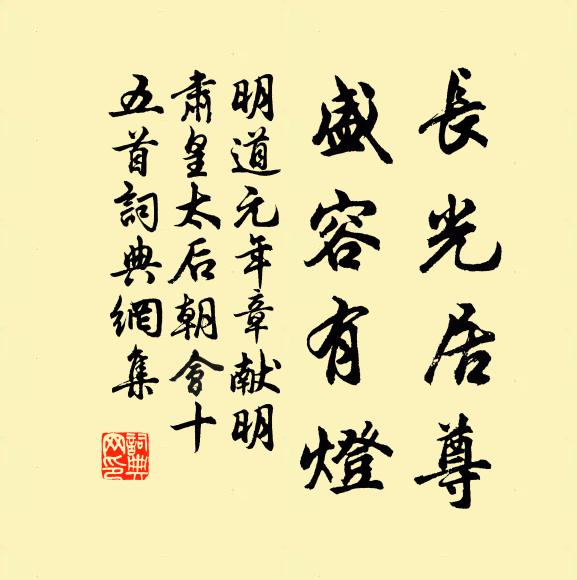 長光居尊
盛容有燈
明道元年章献明
肅皇太后朝會十
五首詞典網集
詞典
网印